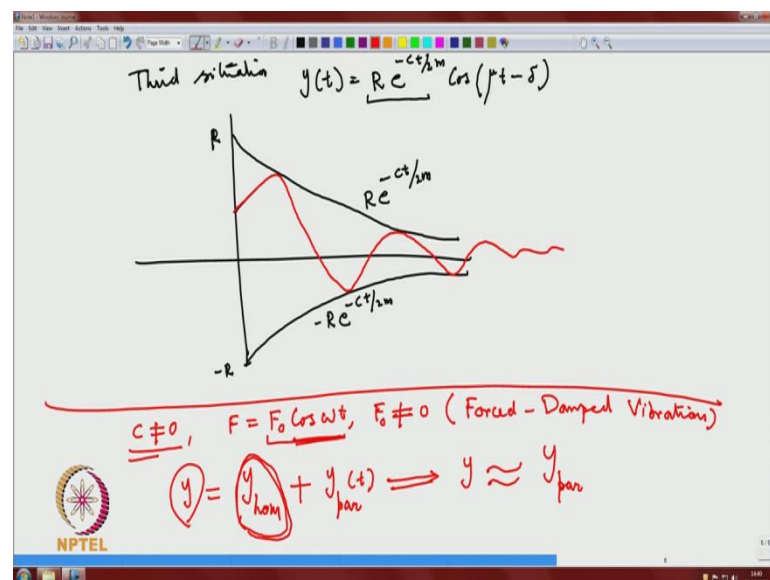 Note1 - Windows Journal
File Edit View Insert Actions Tools Help
Page Width
Third situation y(t) = R e^{-ct/2m} Cos(μt - δ)
R
R e^{-ct/2m}
-R e^{-ct/2m}
-R
C ≠ 0, F = F₀ Cos ωt, F₀ ≠ 0 (Forced - Damped Vibrations)
y = y_{hom} + y_{par}(t) ⟹ y ≈ y_{par}
NPTEL
6